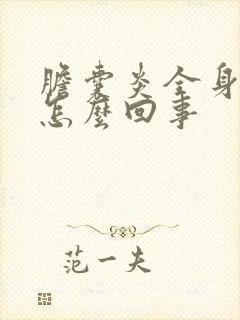 膽囊炎全身
怎麼回事
范一夫